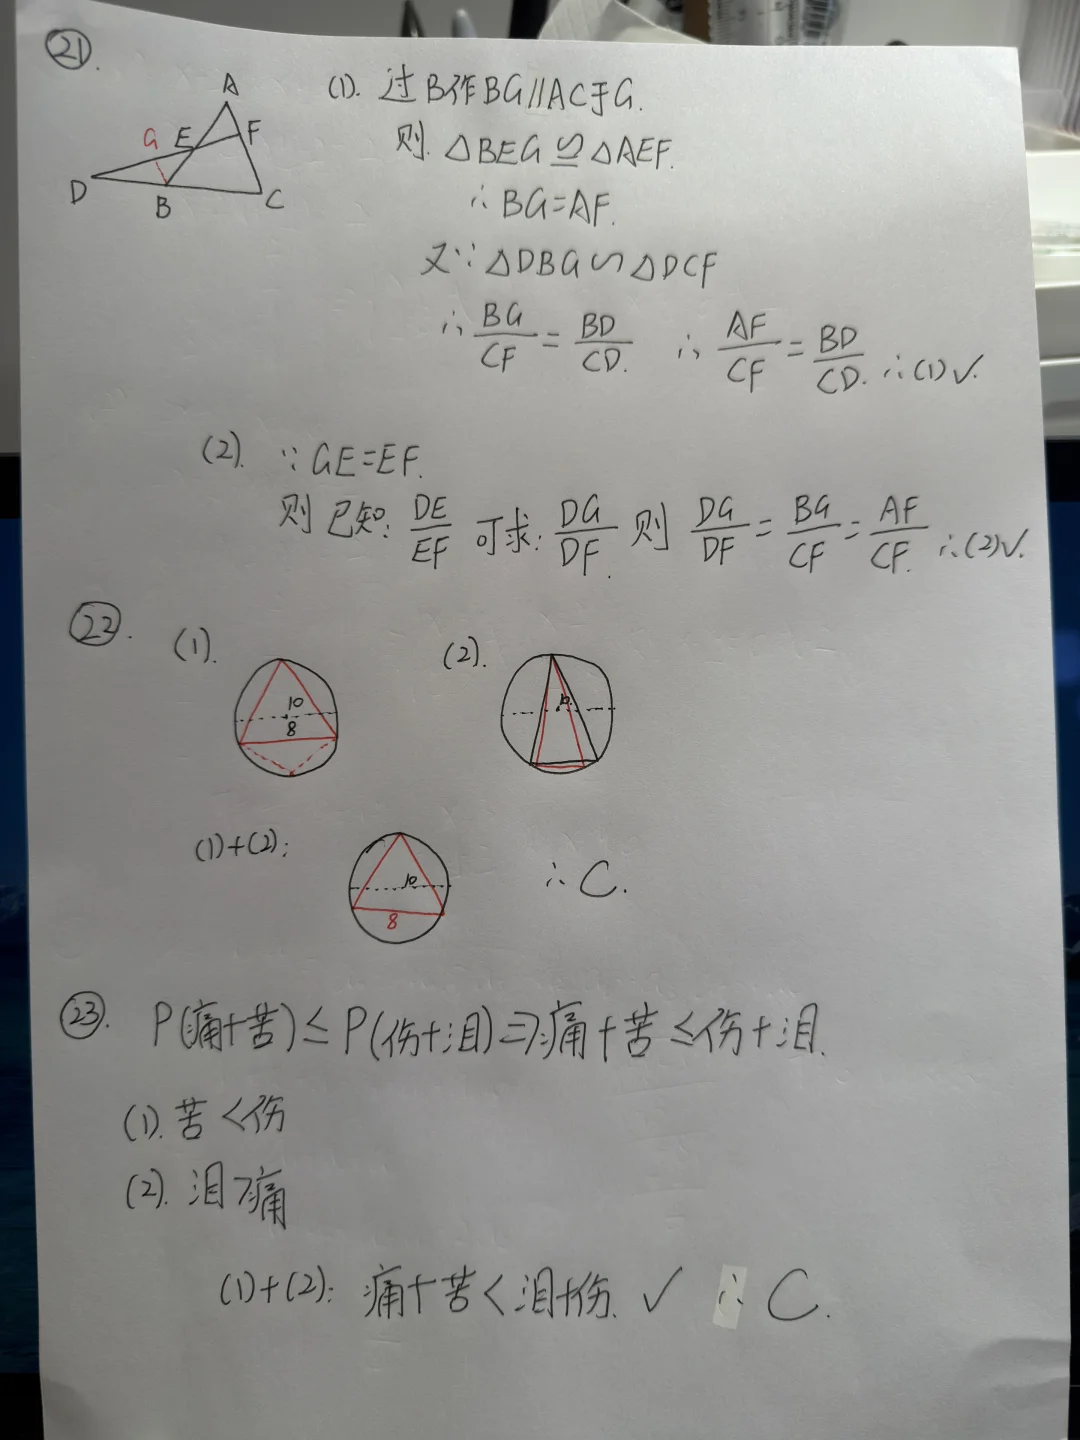 ㉑.
A
E
F
G
D
B
C
(1). 过B作BG∥AC于G.
则. △BEG≌△AEF.
∴BG=AF.
又∵△DBG∽△DCF
∴BG/CF=BD/CD. ∴AF/CF=BD/CD. ∴(1)✓.
(2). ∵GE=EF.
则已知:DE/EF 可求:DG/DF. 则 DG/DF=BG/CF=AF/CF. ∴(2)✓.
㉒. (1). (2).
10
8
10
(1)+(2):
10
8
∴C.
㉓. P(痛+苦)≤P(伤+泪)⇒痛+苦≤伤+泪.
(1). 苦<伤
(2). 泪>痛
(1)+(2): 痛+苦<泪+伤. ✓ ∴C.